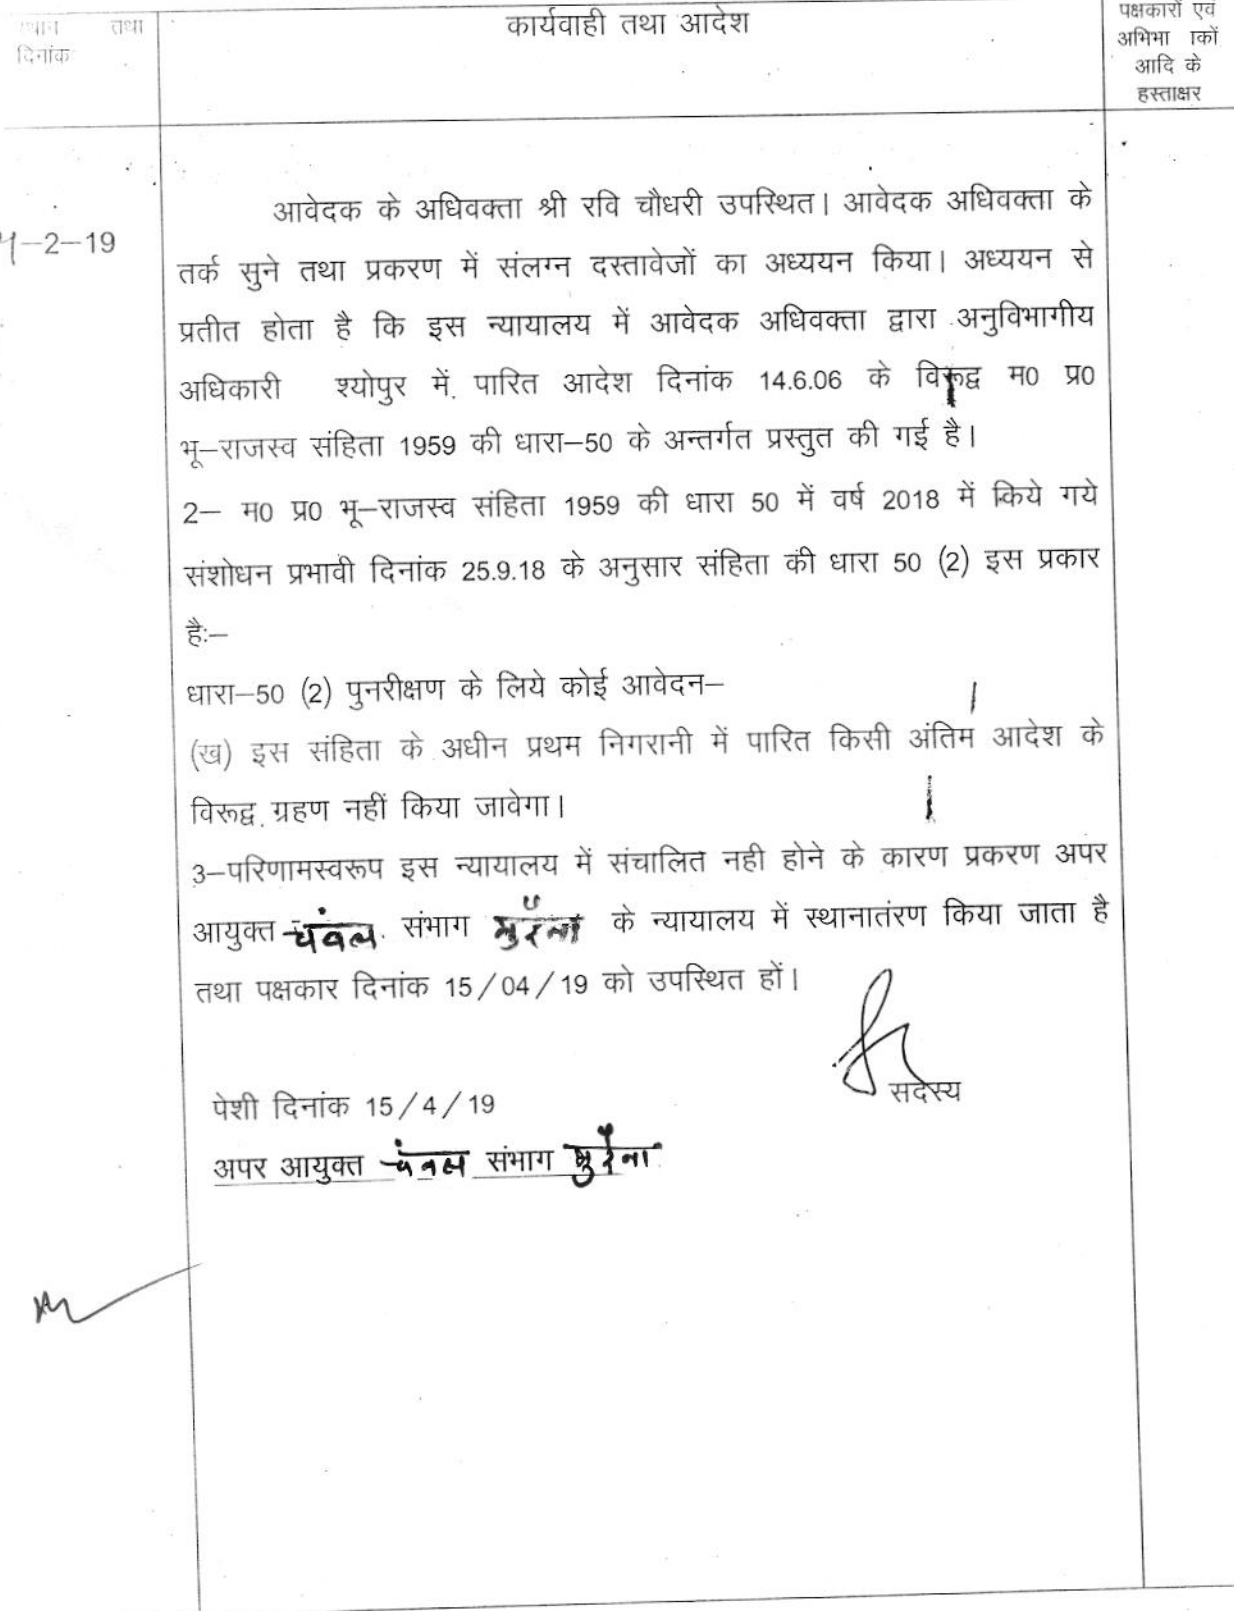 स्थान तथा
दिनांक
कार्यवाही तथा आदेश
पक्षकारों एवं
अभिभा ाकों
आदि के
हस्ताक्षर
4-2-19
आवेदक के अधिवक्ता श्री रवि चौधरी उपस्थित। आवेदक अधिवक्ता के
तर्क सुने तथा प्रकरण में संलग्न दस्तावेजों का अध्ययन किया। अध्ययन से
प्रतीत होता है कि इस न्यायालय में आवेदक अधिवक्ता द्वारा अनुविभागीय
अधिकारी श्योपुर में पारित आदेश दिनांक 14.6.06 के विरूद्व म0 प्र0
भू-राजस्व संहिता 1959 की धारा-50 के अन्तर्गत प्रस्तुत की गई है।
2- म0 प्र0 भू-राजस्व संहिता 1959 की धारा 50 में वर्ष 2018 में किये गये
संशोधन प्रभावी दिनांक 25.9.18 के अनुसार संहिता की धारा 50 (2) इस प्रकार
है:-
धारा-50 (2) पुनरीक्षण के लिये कोई आवेदन-
(ख) इस संहिता के अधीन प्रथम निगरानी में पारित किसी अंतिम आदेश के
विरूद्व ग्रहण नहीं किया जावेगा।
3-परिणामस्वरूप इस न्यायालय में संचालित नही होने के कारण प्रकरण अपर
आयुक्त चंबल संभाग मुरैना के न्यायालय में स्थानातंरण किया जाता है
तथा पक्षकार दिनांक 15/04/19 को उपस्थित हों।
सदस्य
पेशी दिनांक 15/4/19
अपर आयुक्त चंबल संभाग मुरैना